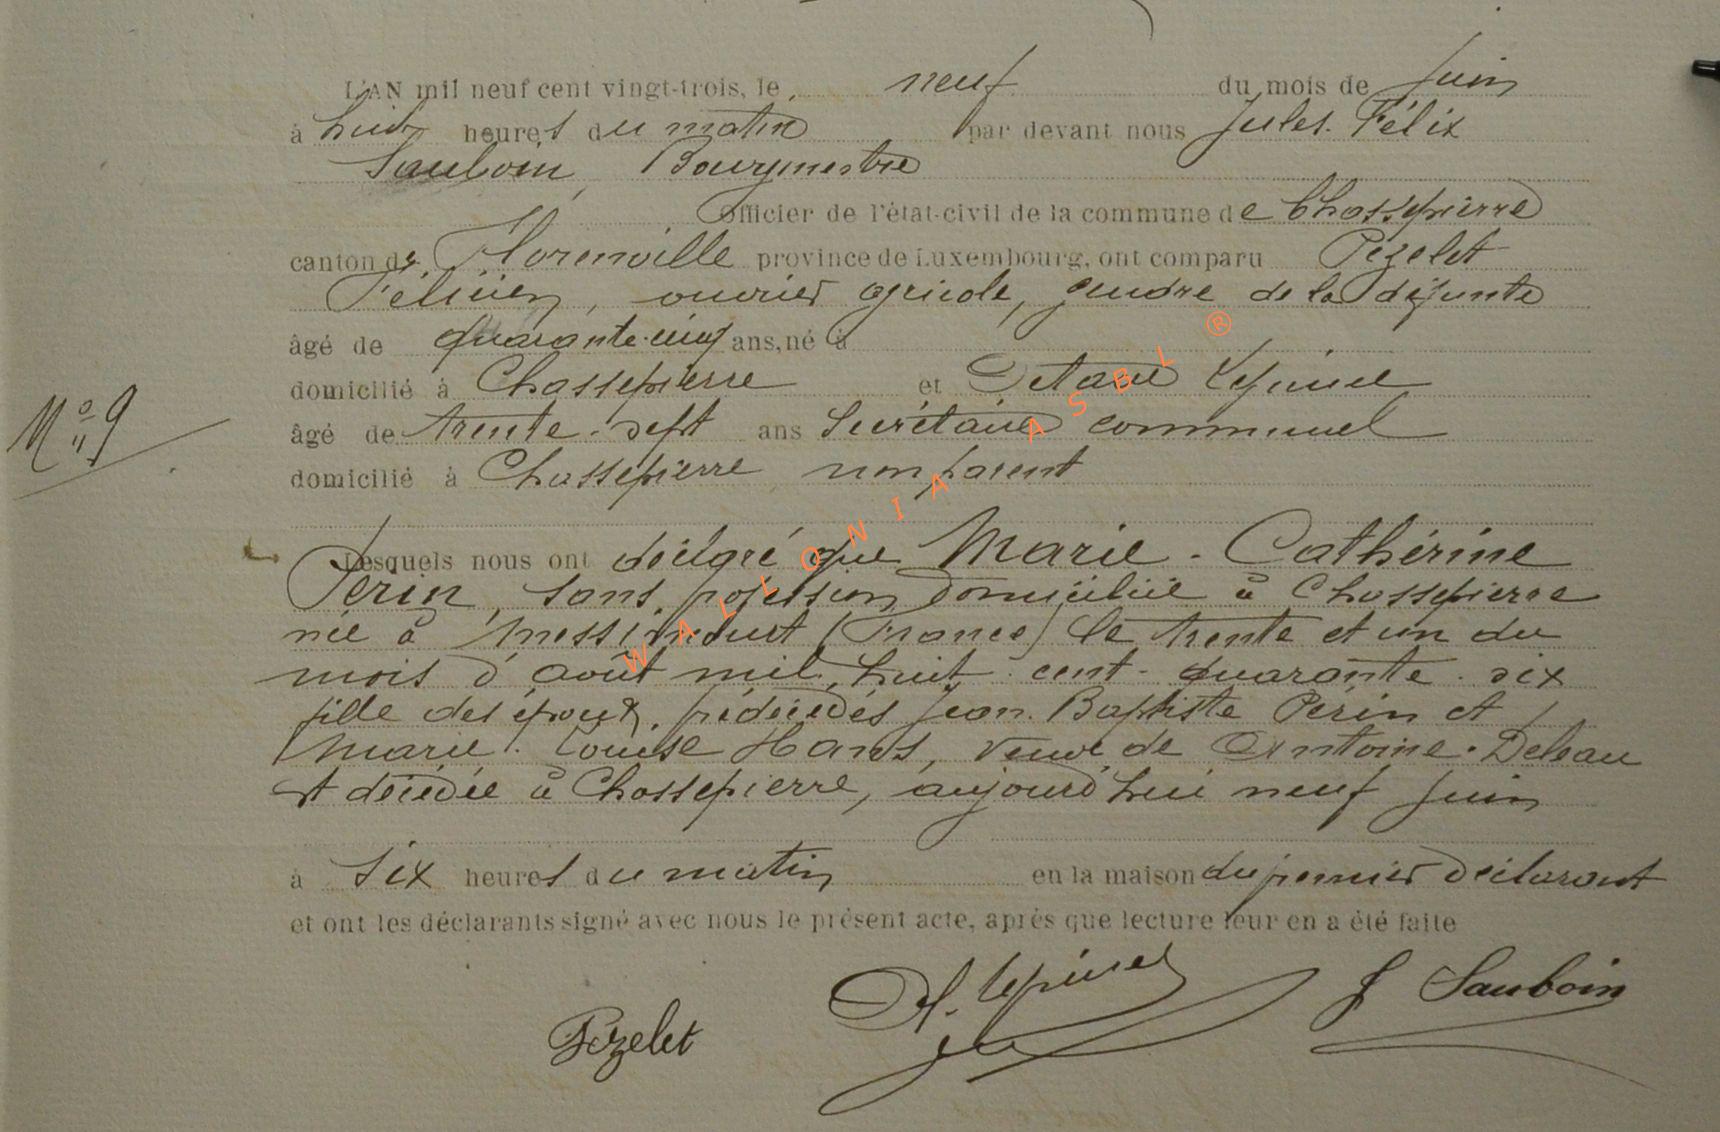 L'AN mil neuf cent vingt-trois, le neuf du mois de juin
à huit heures du matin par devant nous Jules. Félix
Sauboin, Bourgmestre
Officier de l'état-civil de la commune de Chassepierre
canton de Florenville province de Luxembourg, ont comparu Pézelet
Félicien, ouvrier agricole, gendre de la défunte
âgé de quarante-cinq ans, né à
domicilié à Chassepierre et Octave Lepinel
N° 9
âgé de trente-sept ans Secrétaire communal
domicilié à Chassepierre non parent
Lesquels nous ont déclaré que Marie-Cathérine
Perin, sans profession domiciliée à Chassepierre
née à (France) le trente et un du
mois d'août mil huit cent quarante six
fille des époux prédécédés Jean Baptiste Perin et
Marie Louise Hans, veuve de Antoine Deleau
est décédée à Chassepierre, aujourd'hui neuf juin
à six heures du matin en la maison du premier déclarant
et ont les déclarants signé avec nous le présent acte, après que lecture leur en a été faite
Pézelet O. Lepinel J Sauboin
WALLONIA ASBL ®